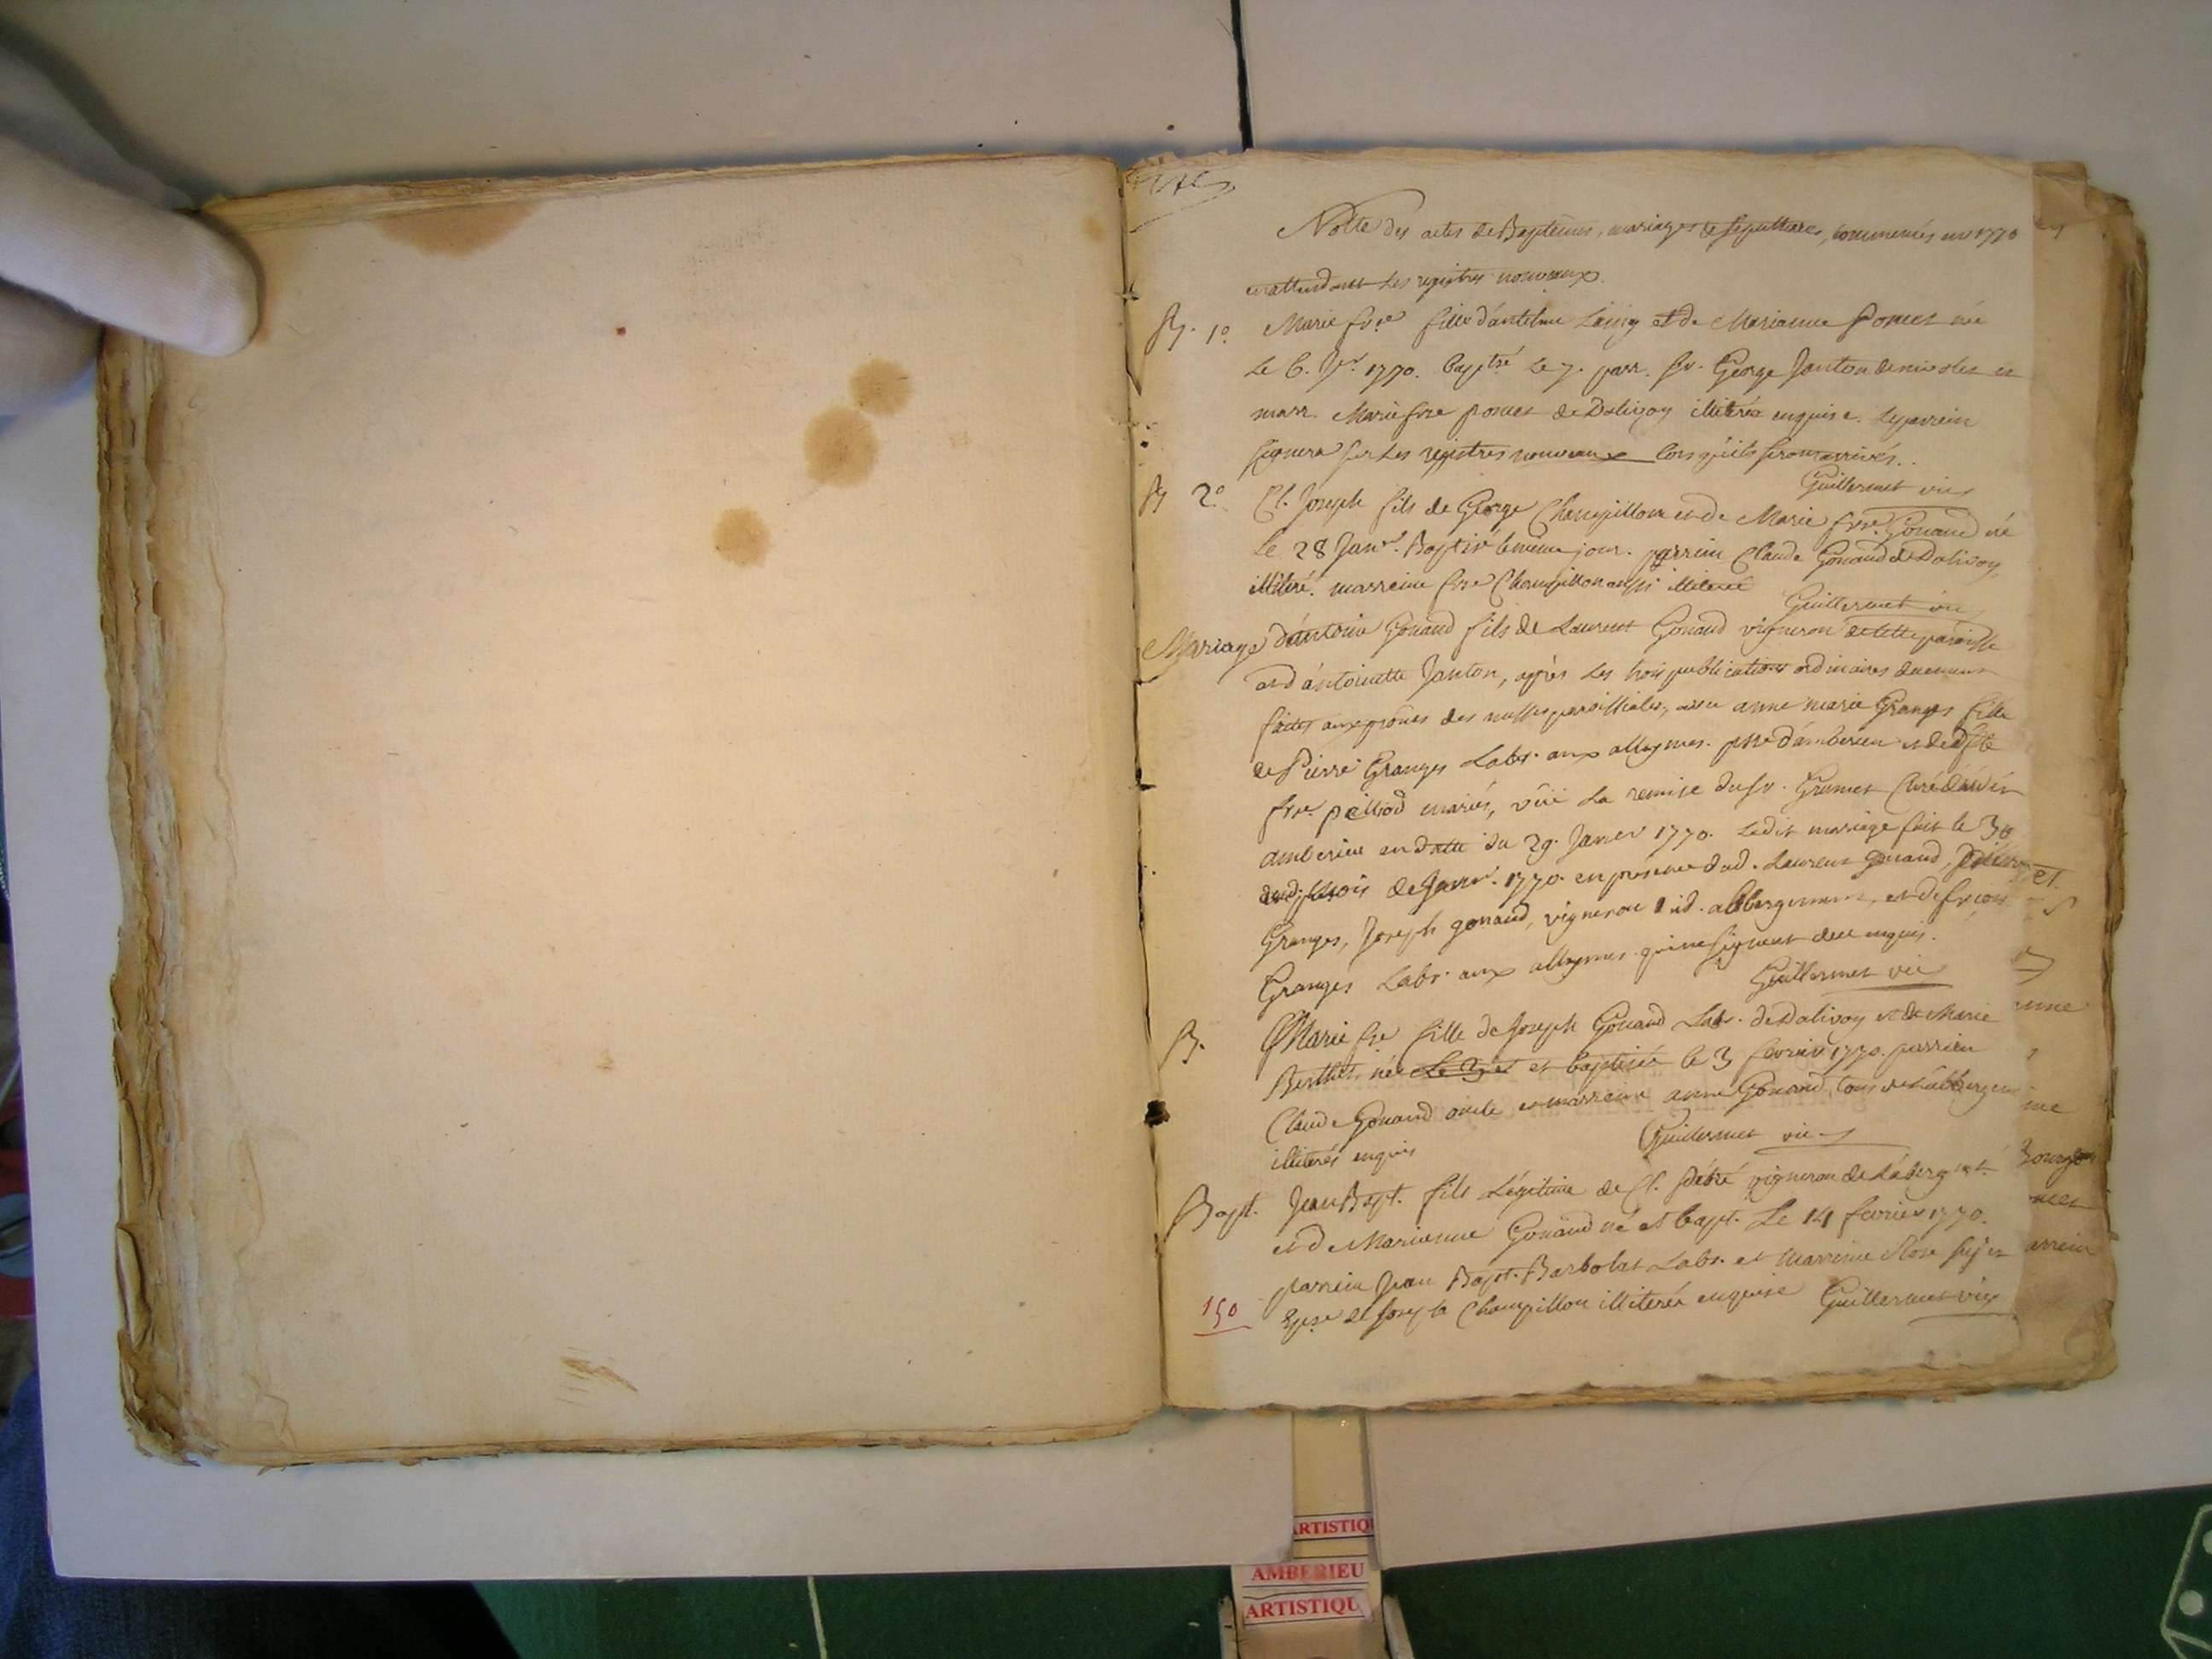 Notte des actes de Baptêmes, mariages et sepultures, commencés en 1770
en attendant les registres nouveaux.
B. 1º Marie fse fille d'antelme Laing et de Marianne Poncet née
le 6. Jer 1770. baptsé le 7. parr. sr. George Janton de nivoles et
marr. Marie fse poncet de Dalivoy illiterée enquise. Le parrein
signera sur les registres nouveaux lorsqu'ils seront arrivés.
Guillermet vic
B 2º Cl. Joseph fils de George Champillon et de Marie fse Gonand né
le 28 Janr. Baptisé le même jour. parrein Claude Gonand de Dalivoy
illiteré. marreine fse Champillon aussi illiterée
Guillermet vic
Mariage d'antoine Gonand fils de Laurent Gonand vigneron de cette paroisse
et d'antoinette Janton, après les trois publications ordinaires duement
faites aux prônes des messes paroissiales, avec anne marie Granges fille
de Pierre Granges Labr. aux allymes. psse d'amberieu et de
fse pellod mariés, vûë la remise du sr. Grumet Curé dudit
amberieu en datte du 29. Janver 1770. Ledit mariage fait le 30
dud. mois de Janvr. 1770. en présence dud. Laurent gonand,
Granges, Joseph gonand, vigneron aud. abbergement, et de
Granges Labr. aux allymes qui ne signent de ce enquis.
Guillermet vic
B. Marie fse fille de Joseph Gonand Labr. de Dalivoy et de Marie
Berthet, née et baptisée le 3 fevrier 1770. parrein
Claude Gonand oncle et marreine anne Gonand, tous de l'abbergem
illiterés enquis Guillermet vic
Bapt. Jean Bapt. fils Légitime de Cl. Debré vigneron de
et de Marianne Gonand né et bapt. Le 14 fevrier 1770.
parrein Jean Bapt. Barbolat Labr. et marreine Rose
Epse de Joseph Champillon illiterée enquise Guillermet vic
150
et
nne
ne
Bourgeon
arrein
ARTISTIQ
AMBERIEU
ARTISTIQU